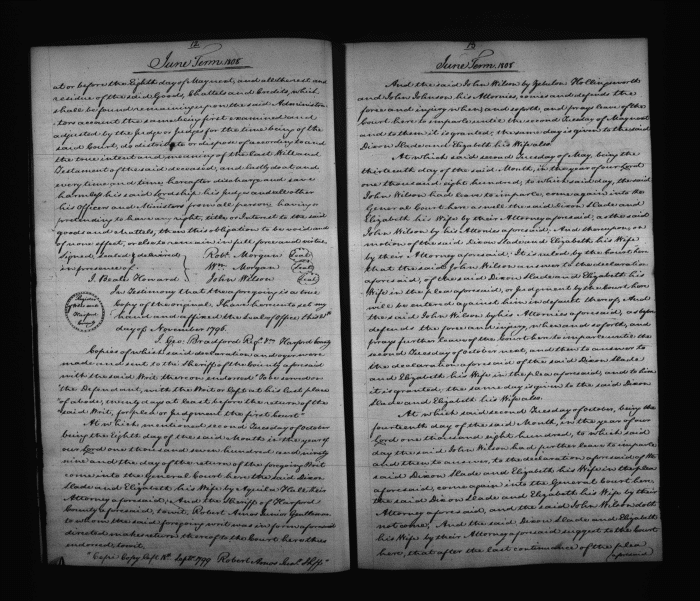 12
June Term, 1808
at or before the Eighth day of May next, and all the rest and
residue of the said Goods, Chattels and Credits, which
shall be found remaining upon the said Administra-
tors account the same being first examined and
adjusted by the Judge or Judges for the time being of the
said Court, do distribute or dispose of according to
the true intent and meaning of the Last Will and
Testament of the said deceased, and lastly do at and
every time and times hereafter discharge and save
harmless his said Lordship his Judges and all other
his Officers and Ministers from all persons having or
pretending to have any right, title or Interest to the said
goods and Chattels, then this obligation to be void and
of none effect, or else to remain in full force and virtue.
Signed, sealed & delivered } Robt. Morgan (Seal)
in presence of } Wm. Morgan (Seal)
J. Beall Howard } John Wilson (Seal)
In Testimony that the foregoing is a true
Copy of the original, I have hereunto set my
hand and affixed the Seal of Office this
day of November 1796.
J. Geo: Bradford Regr. Harford County
Copies of which said declaration and oyer were
made and sent to the Sheriff of the County aforesaid
with the said Writ thereon endorsed "To be served on
the Defendant, with the Writ or left at his last place
of abode, twenty days at least before the return of the
said Writ, for plea or Judgment the first Court"
At which mentioned second Tuesday of October
being the Eighth day of the said Month in the year of
our Lord one thousand seven hundred and ninety
nine and the day of the return of the foregoing Writ
come into the General Court here the said Dixon
Slade and Elizabeth his Wife by Aquila Hall their
Attorney aforesaid, And the Sheriff of Harford
County aforesaid, to wit, Robert Amos Junior Gentleman
to whom the said foregoing writ was in form aforesaid
directed makes return thereof to the Court here thus
endorsed, to wit.
"Cepi Copy left Septr. 1799 Robert Amos Junr. Shff."
13
June Term, 1808
And the said John Wilson by Zebulon Hollingsworth
and John Johnson his Attornies, comes and defends the
force and injury when and so forth, and prays leave of the
Court here to imparle until the second Tuesday of May next
and to them it is granted; the same day is given to the said
Dixon Slade and Elizabeth his Wife also.
At which said second Tuesday of May, being the
thirteenth day of the said Month, in the year of our Lord
one thousand eight hundred, to which said day, the said
John Wilson had leave to imparle, come again into the
General Court here as well the said Dixon Slade and
Elizabeth his Wife by their Attorney aforesaid; as the said
John Wilson by his Attornies aforesaid; And thereupon, on
motion of the said Dixon Slade and Elizabeth his Wife
by their Attorney aforesaid; It is ruled by the Court here
that the said John Wilson answer to the declaration
aforesaid, of the said Dixon Slade and Elizabeth his
Wife in the plea aforesaid, or Judgment by the Court here
will be entered against him in default thereof. And
the said John Wilson by his Attornies aforesaid, as before
defends the force and injury, when and so forth, and
prays further leave of the Court here to imparle until the
second Tuesday of October next, and then to answer to
the declaration aforesaid of the said Dixon Slade
and Elizabeth his Wife in the plea aforesaid, and to him
it is granted; the same day is given to the said Dixon
Slade and Elizabeth his Wife also.
At which said second Tuesday of October, being the
fourteenth day of the said Month, in the year of our
Lord one thousand eight hundred, to which said
day the said John Wilson had further leave to imparle
and then to answer, to the declaration aforesaid of the
said Dixon Slade and Elizabeth his Wife in the plea
aforesaid, come again into the General Court here,
the said Dixon Slade and Elizabeth his Wife by their
Attorney aforesaid, and the said John Wilson doth
not come; And the said Dixon Slade and Elizabeth
his Wife by their Attorney aforesaid suggest to the Court
here, that after the last continuance of the plea
aforesaid